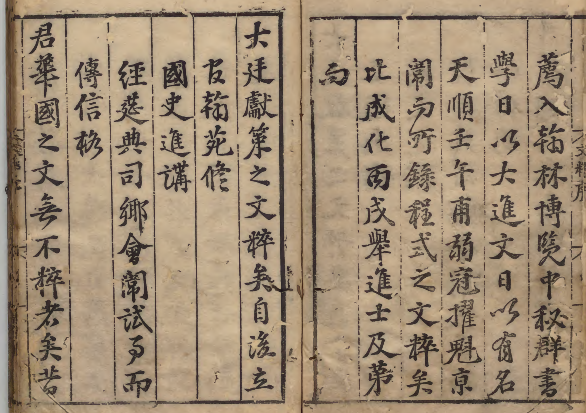 薦入翰林博覽中秘群書
學日以大進文日以有名
天順壬午甫弱冠擢魁京
闈而所錄程式之文粹矣
比成化丙戌舉進士及第
而
大廷獻策之文粹矣自後立
官翰苑修
國史進講
經筵典司鄉會闈試事而
傳信格
君華國之文無不粹者矣昔